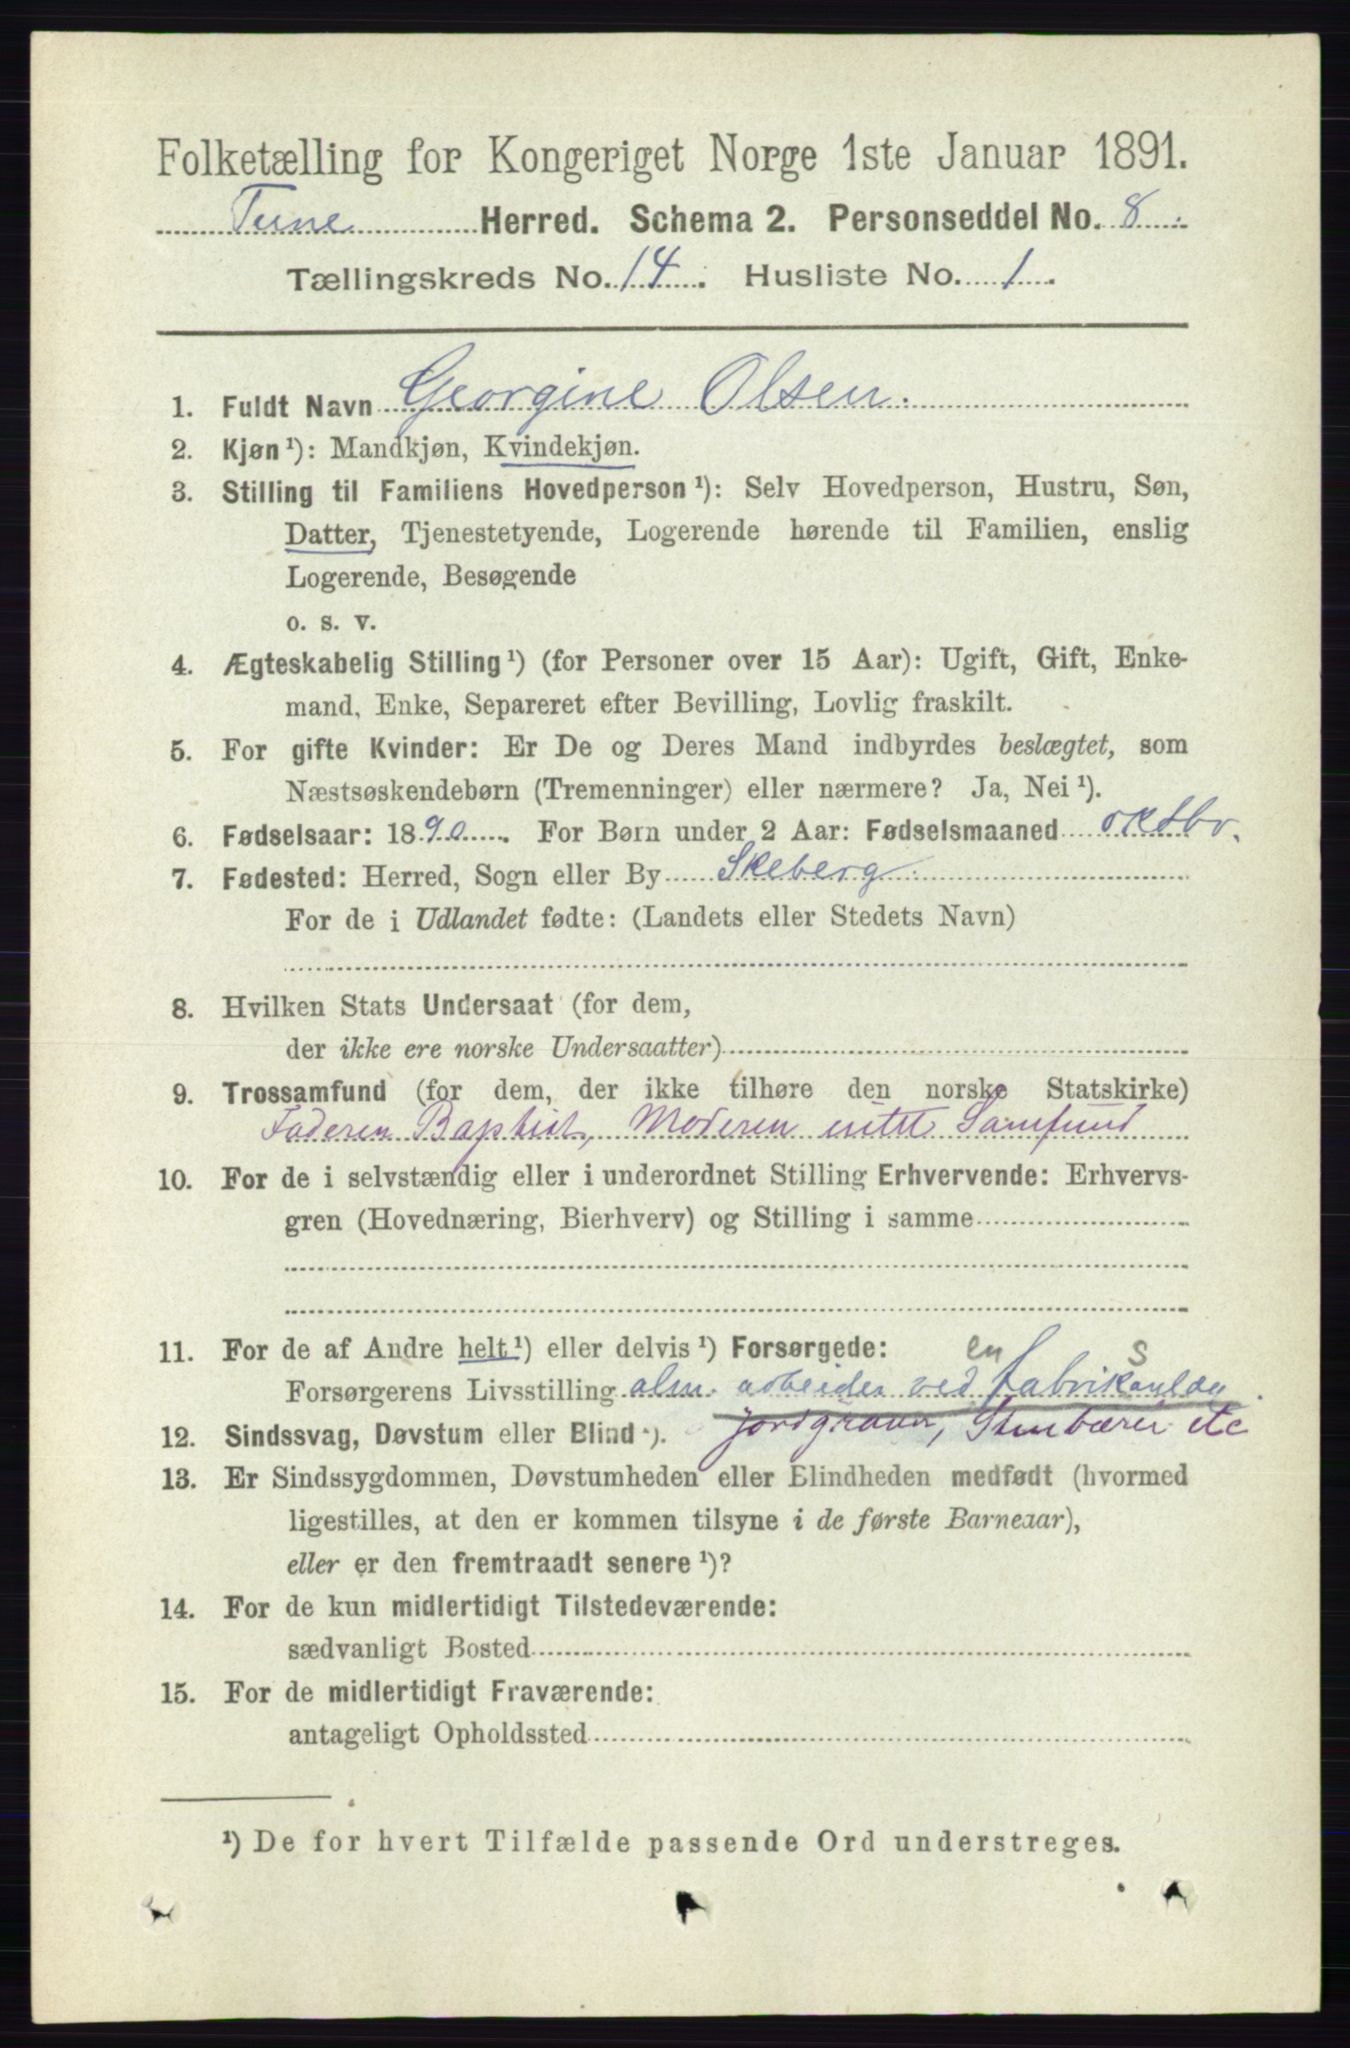 Folketælling for Kongeriget Norge 1ste Januar 1891.
Tune Herred. Schema 2. Personseddel No. 8.
Tællingskreds No. 14. Husliste No. 1.
1. Fuldt Navn Georgine Olsen.
2. Kjøn ¹): Mandkjøn, Kvindekjøn.
3. Stilling til Familiens Hovedperson ¹): Selv Hovedperson, Hustru, Søn,
Datter, Tjenestetyende, Logerende hørende til Familien, enslig
Logerende, Besøgende
o. s. v.
4. Ægteskabelig Stilling ¹) (for Personer over 15 Aar): Ugift, Gift, Enke-
mand, Enke, Separeret efter Bevilling, Lovlig fraskilt.
5. For gifte Kvinder: Er De og Deres Mand indbyrdes beslægtet, som
Næstsøskendebørn (Tremenninger) eller nærmere? Ja, Nei ¹).
6. Fødselsaar: 1890. For Børn under 2 Aar: Fødselsmaaned oktbr.
7. Fødested: Herred, Sogn eller By Skeberg
For de i Udlandet fødte: (Landets eller Stedets Navn)
8. Hvilken Stats Undersaat (for dem,
der ikke ere norske Undersaatter)
9. Trossamfund (for dem, der ikke tilhøre den norske Statskirke)
Faderen Baptist, Moderen intet Samfund
10. For de i selvstændig eller i underordnet Stilling Erhvervende: Erhvervs-
gren (Hovednæring, Bierhverv) og Stilling i samme
11. For de af Andre helt ¹) eller delvis ¹) Forsørgede:
en s
Forsørgerens Livsstilling alm. arbeider ved fabrik
12. Sindssvag, Døvstum eller Blind ¹). jordgraver, Stenbærer etc
13. Er Sindssygdommen, Døvstumheden eller Blindheden medfødt (hvormed
ligestilles, at den er kommen tilsyne i de første Barneaar),
eller er den fremtraadt senere ¹)?
14. For de kun midlertidigt Tilstedeværende:
sædvanligt Bosted
15. For de midlertidigt Fraværende:
antageligt Opholdssted
¹) De for hvert Tilfælde passende Ord understreges.